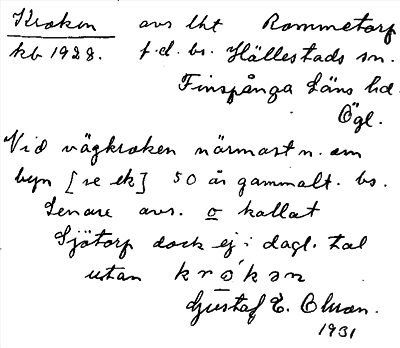 Kroken avs lht Rommetorp
kb 1928. f.d. bs. Hällestads sn.
Finspånga läns hd.
Ögl.
Vid vägkroken närmast n. om
byn [se ek] 50 år gammalt. bs.
Senare avs. o kallat
Sjötorp dock ej i dagl. tal
utan krókən
Gustaf E. Olson.
1931